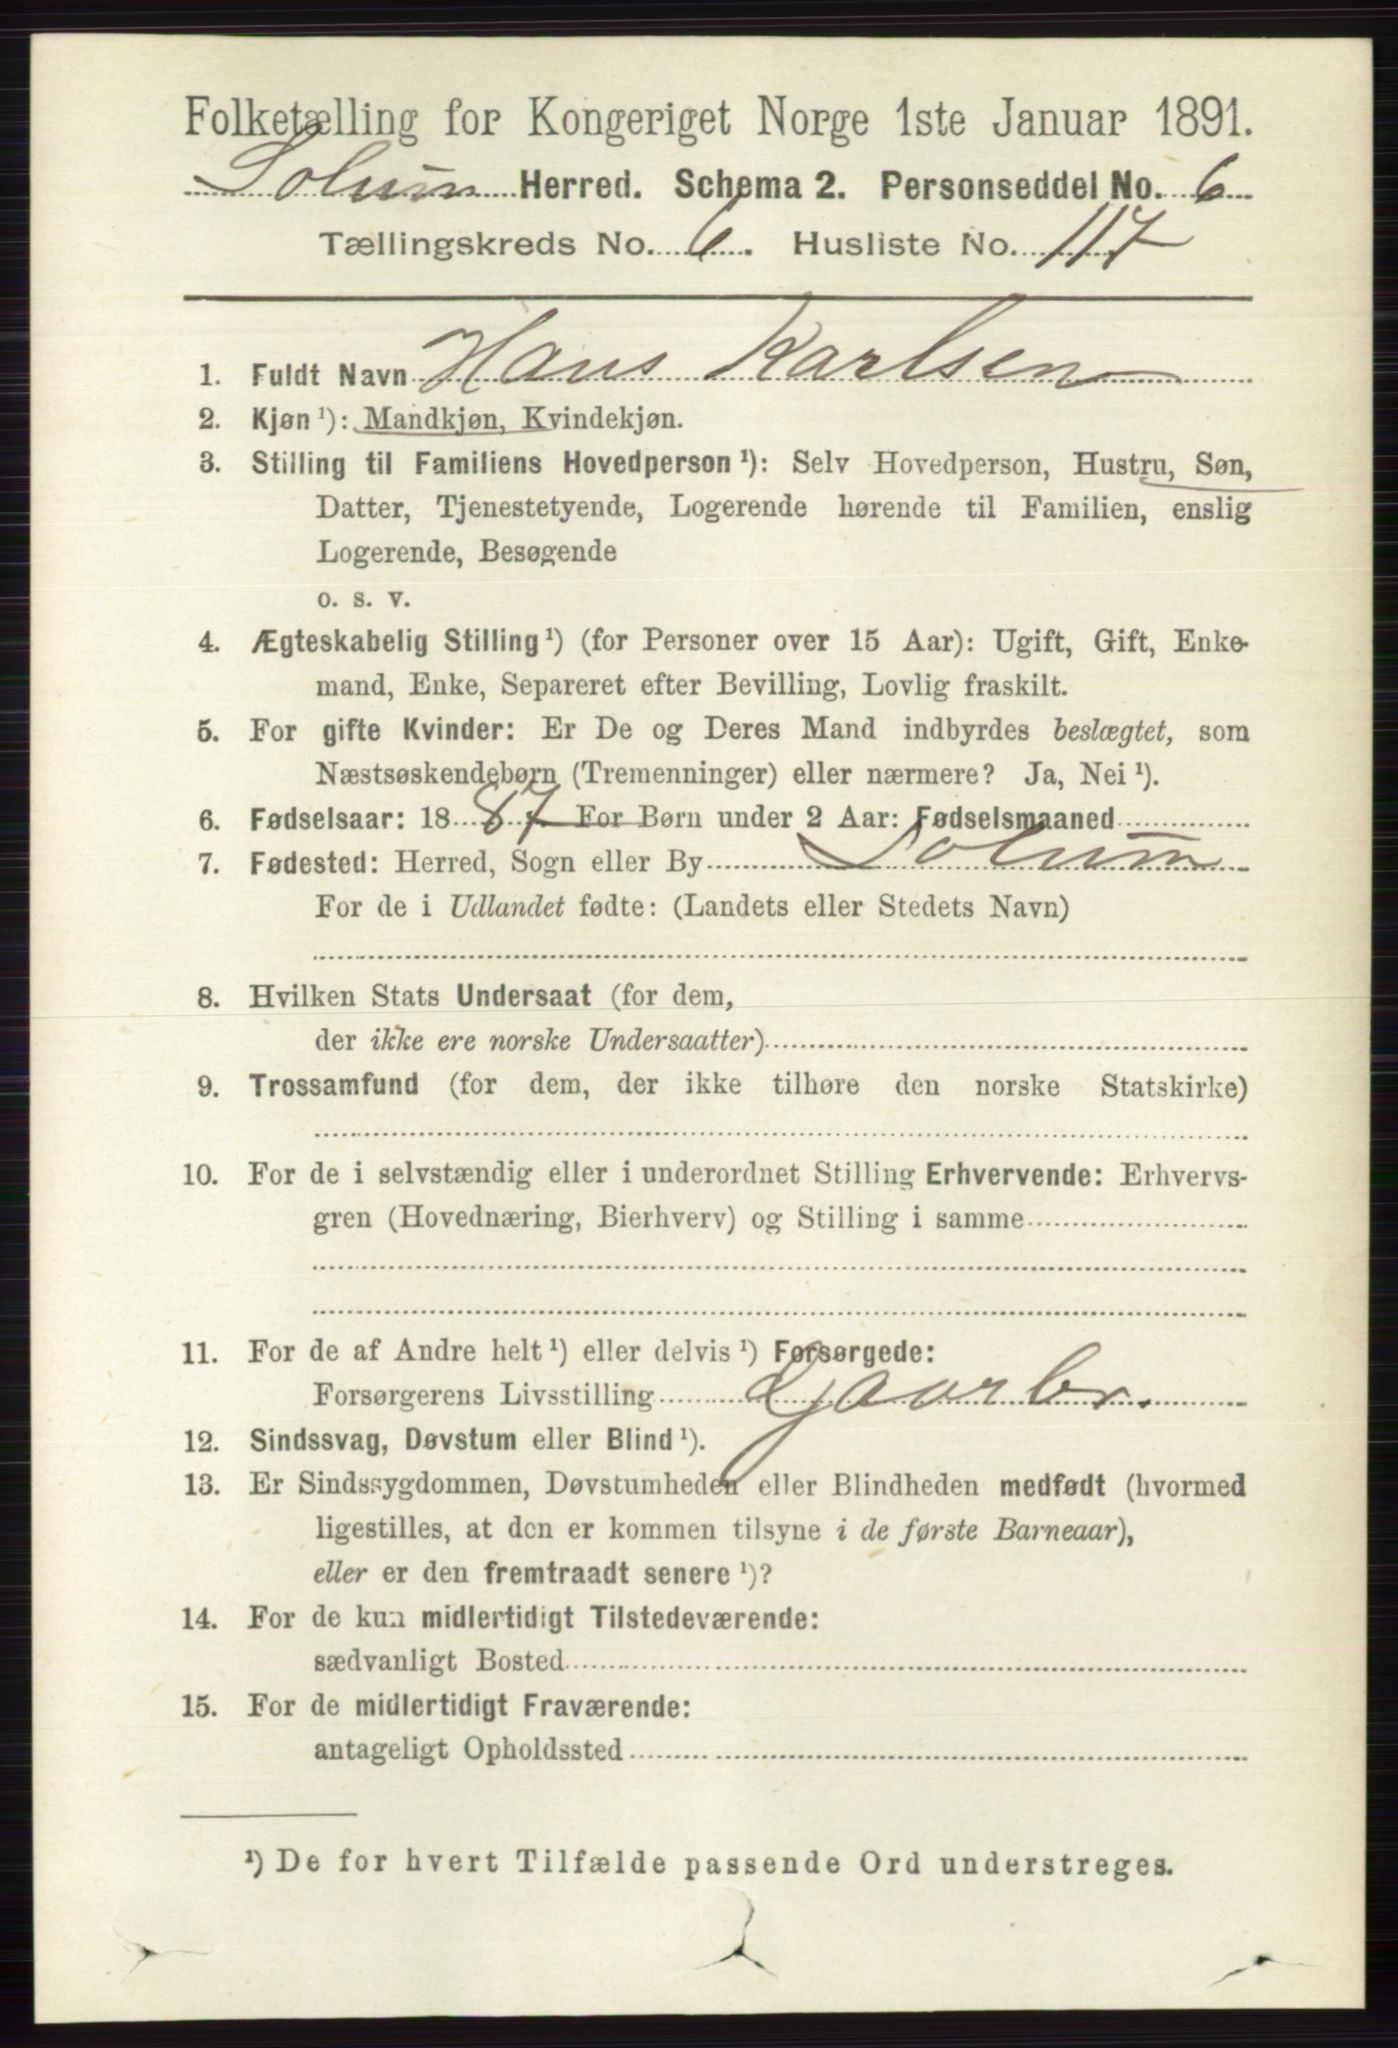 Folketælling for Kongeriget Norge 1ste Januar 1891.
Solum Herred. Schema 2. Personseddel No. 6
Tællingskreds No. 6. Husliste No. 117
1. Fuldt Navn Hans Karlsen
2. Kjøn ¹): Mandkjøn, Kvindekjøn.
3. Stilling til Familiens Hovedperson ¹): Selv Hovedperson, Hustru, Søn,
Datter, Tjenestetyende, Logerende hørende til Familien, enslig
Logerende, Besøgende
o. s. v.
4. Ægteskabelig Stilling ¹) (for Personer over 15 Aar): Ugift, Gift, Enke-
mand, Enke, Separeret efter Bevilling, Lovlig fraskilt.
5. For gifte Kvinder: Er De og Deres Mand indbyrdes beslægtet, som
Næstsøskendebørn (Tremenninger) eller nærmere? Ja, Nei ¹).
6. Fødselsaar: 1887 For Børn under 2 Aar: Fødselsmaaned
7. Fødested: Herred, Sogn eller By Solum
For de i Udlandet fødte: (Landets eller Stedets Navn)
8. Hvilken Stats Undersaat (for dem,
der ikke ere norske Undersaatter)
9. Trossamfund (for dem, der ikke tilhøre den norske Statskirke)
10. For de i selvstændig eller i underordnet Stilling Erhvervende: Erhvervs-
gren (Hovednæring, Bierhverv) og Stilling i samme
11. For de af Andre helt ¹) eller delvis ¹) Forsørgede:
Forsørgerens Livsstilling Gaarbr.
12. Sindssvag, Døvstum eller Blind ¹).
13. Er Sindssygdommen, Døvstumheden eller Blindheden medfødt (hvormed
ligestilles, at den er kommen tilsyne i de første Barneaar),
eller er den fremtraadt senere ¹)?
14. For de kun midlertidigt Tilstedeværende:
sædvanligt Bosted
15. For de midlertidigt Fraværende:
antageligt Opholdssted
¹) De for hvert Tilfælde passende Ord understreges.